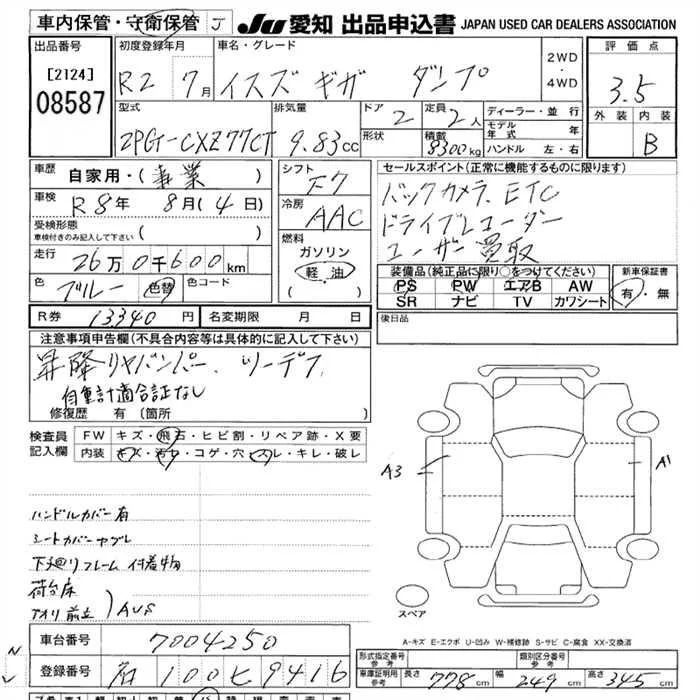 車内保管・守衛保管 J JU 愛知 出品申込書 JAPAN USED CAR DEALERS ASSOCIATION
出品番号 初度登録年月 車名・グレード 2WD・4WD 評価点
[2124] R2 7月 イスズ ギガ ダンプ 3.5
08587 型式 排気量 ドア 2 定員 2人 ディーラー・並行 外装 内装
2PG-CXZ77CT 9.83cc 形状 積載 8300kg モデル年式 B
ハンドル 左・右
車歴 自家用・(事業) シフト F7 セールスポイント(正常に機能するものに限ります)
車検 R8年 8月(4日) 冷房 AAC バックカメラ、ETC
受検形態 ドライブレコーダー
車検付きのみ記入して下さい 燃料 ユーザー買取
走行 26万0千600km ガソリン 装備品(純正品に限り○をつけてください) 新車保証書
色 ブルー 色替 色コード (軽・油) PS PW エアB AW 有・無
SR ナビ TV カワシート
R券 13340円 名変期限 月 日 後日品
注意事項申告欄(不具合内容等は具体的に記入して下さい)
昇降リヤバンパー ツーデフ
自重計適合証なし
修復歴 有(箇所 )
検査員 FW キズ・飛石・ヒビ割・リペア跡・X要
記入欄 内装 キズ・汚れ・コゲ・穴・スレ・キレ・破レ
A3 A1
ハンドルカバー有
シートカバーヤブレ
下廻りフレーム付着物
荷台床
アオリ前立 AUS
スペア
A-キズ E-エクボ U-凹み W-補修跡 S-サビ C-腐食 XX-交換済
車台番号 7004250
形式指定番号 参考 類別区分番号 参考
登録番号 100 ヒ 9416
車庫証明用 参考 長さ 778cm 幅 249cm 高さ 345cm